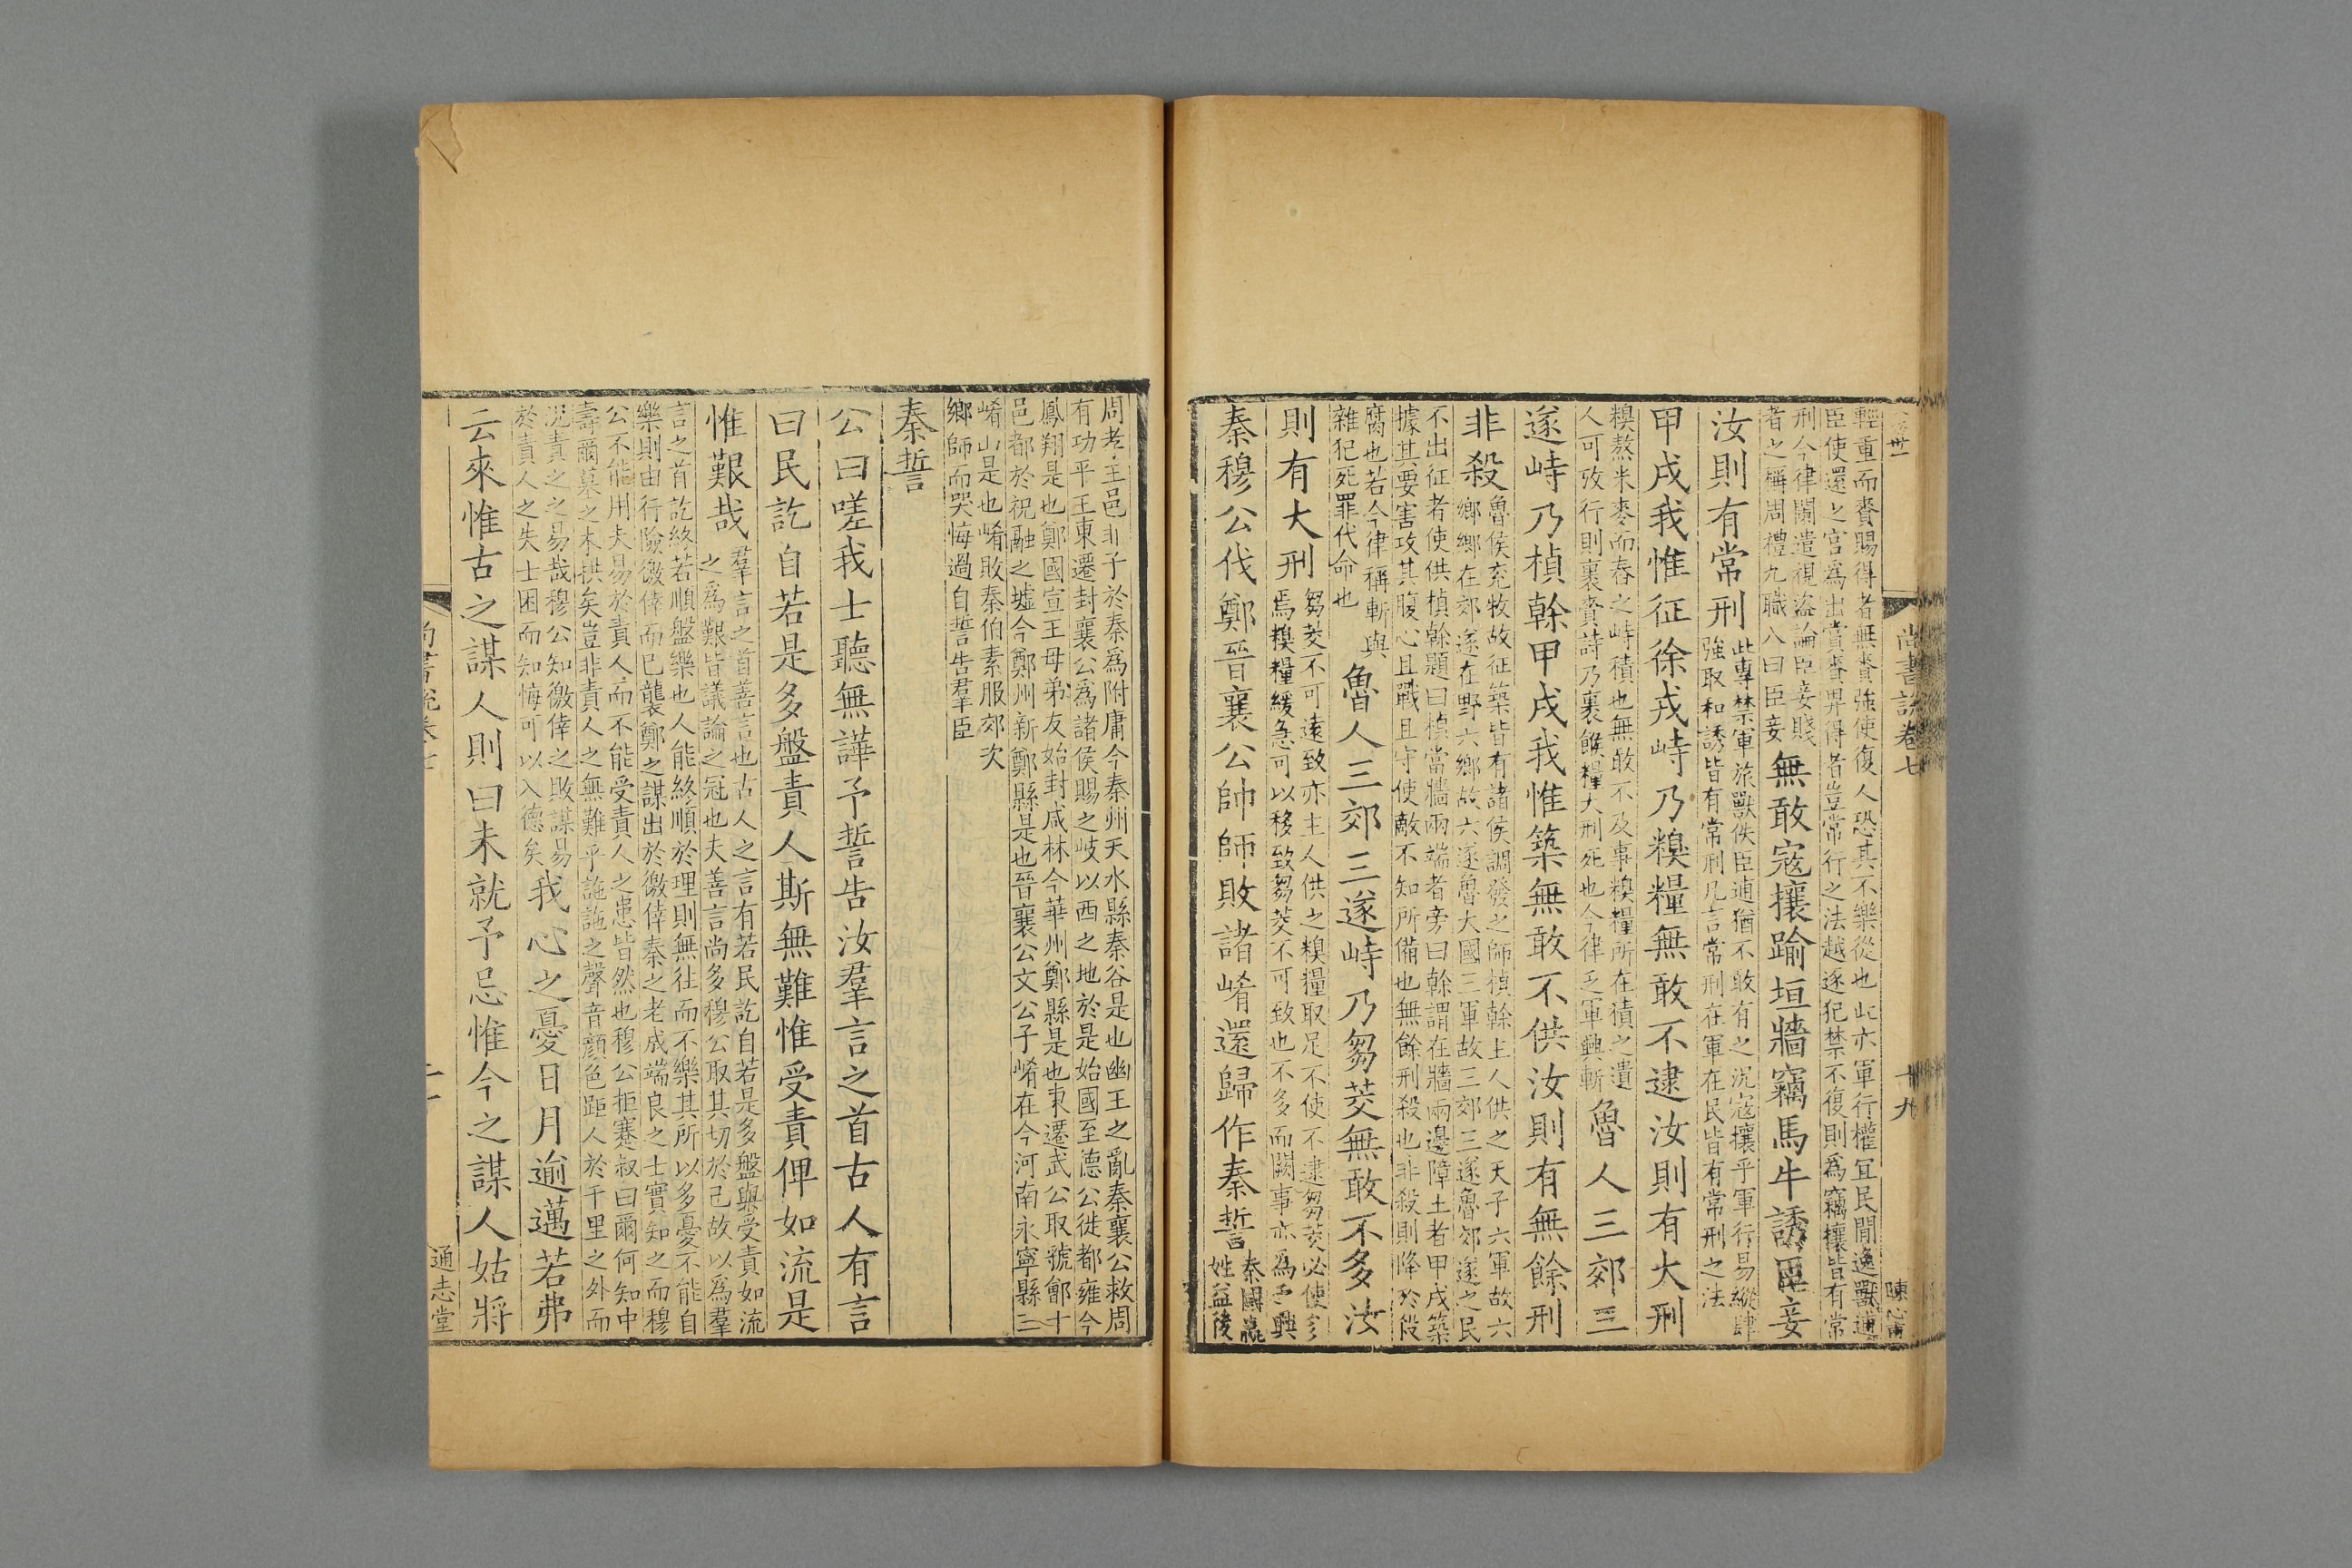 尚書説卷七
十九
輕重而賚賜得者無賚強使復人恐其不樂從也此亦軍行權宜民間逸獸逋
臣使還之官為出賞賚畀得者豈常行之法越逐犯禁不復則為竊攘皆有常
刑今律闌遣視盜論臣妾賤
者之稱周禮九職八曰臣妾
無敢寇攘踰垣牆竊馬牛誘臣妾
汝則有常刑
此專禁軍旅獸佚臣逋猶不敢有之况寇攘乎軍行易縱肆
強取和誘皆有常刑凡言常刑在軍在民皆有常刑之法
甲戌我惟征徐戎峙乃糗糧無敢不逮汝則有大刑
糗熬米麥而舂之峙積也無敢不及事糗糧所在積之遺
人可攷行則裹賚詩乃裹餱糧大刑死也今律乏軍興斬
魯人三郊三
遂峙乃楨榦甲戌我惟築無敢不供汝則有無餘刑
非殺
魯侯充牧故征築皆有諸侯調發之師楨榦主人供之天子六軍故六
鄉鄉在郊遂在野六鄉故六遂魯大國三軍故三郊三遂魯郊遂之民
不出征者使供楨榦題曰楨當牆兩端者旁曰榦謂在牆兩邊障土者甲戌築
據其要害攻其腹心且戰且守使敵不知所備也無餘刑殺也非殺則降於殺
腐也若今律稱斬與
雜犯死罪代命也
魯人三郊三遂峙乃芻茭無敢不多汝
則有大刑
芻茭不可遠致亦主人供之糗糧取足不使不逮芻茭必使多
焉糗糧緩急可以移致芻茭不可致也不多而闕事亦為乏興
秦穆公伐鄭晉襄公帥師敗諸崤還歸作秦誓
秦國嬴
姓益後
周孝王邑非子於秦為附庸今秦州天水縣秦谷是也幽王之亂秦襄公救周
有功平王東遷封襄公為諸侯賜之岐以西之地於是始國至德公徙都雍今
鳳翔是也鄭國宣王母弟友始封咸林今華州鄭縣是也東遷武公取虢鄶十
邑都於祝融之墟今鄭州新鄭縣是也晉襄公文公子崤在今河南永寧縣三
崤山是也崤敗秦伯素服郊次
鄉師而哭悔過自誓告羣臣
秦誓
公曰嗟我士聽無譁予誓告汝羣言之首古人有言
曰民訖自若是多盤責人斯無難惟受責俾如流是
惟艱哉
羣言之首善言也古人之言有若民訖自若是多盤與受責如流
之為艱皆議論之冠也夫善言尚多穆公取其切於己故以為羣
言之首訖終若順盤樂也人能終順於理則無往而不樂其所以多憂不能自
樂則由行險徼倖而已襲鄭之謀出於徼倖秦之老成端良之士實知之而穆
公不能用夫易於責人而不能受責人之患皆然也穆公拒蹇叔曰爾何知中
壽爾墓之木拱矣豈非責人之無難乎訑訑之聲音顏色距人於千里之外而
况責之之易哉穆公知徼倖之敗謀易
於責人之失士困而知悔可以入德矣
我心之憂日月逾邁若弗
云來惟古之謀人則曰未就予忌惟今之謀人姑將
通志堂